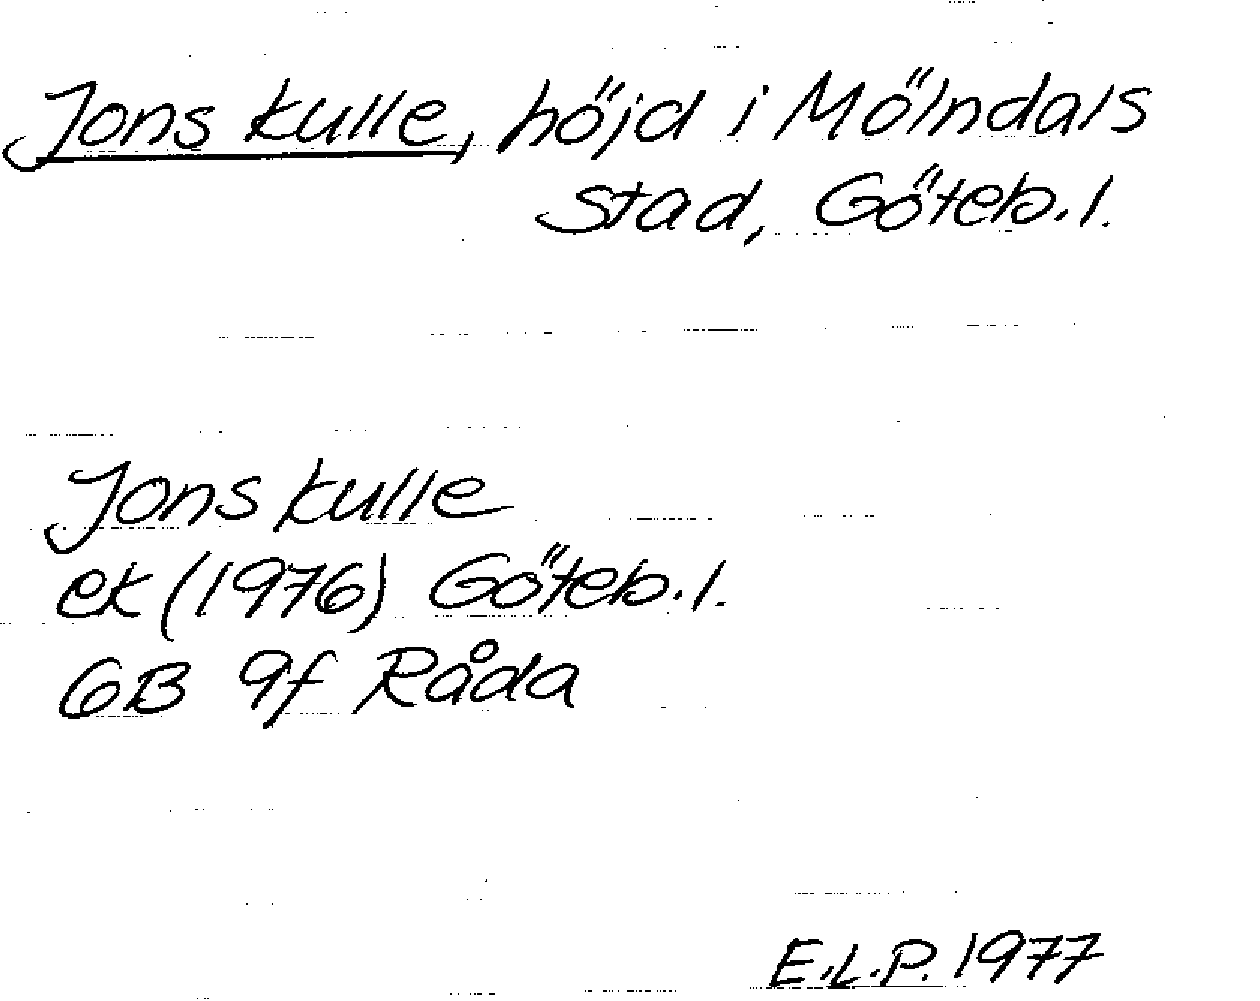 Jons kulle, höjd i Mölndals
stad, Göteb.l.
Jons kulle
ek (1976) Göteb.l.
6B 9f Råda
E.L.P. 1977